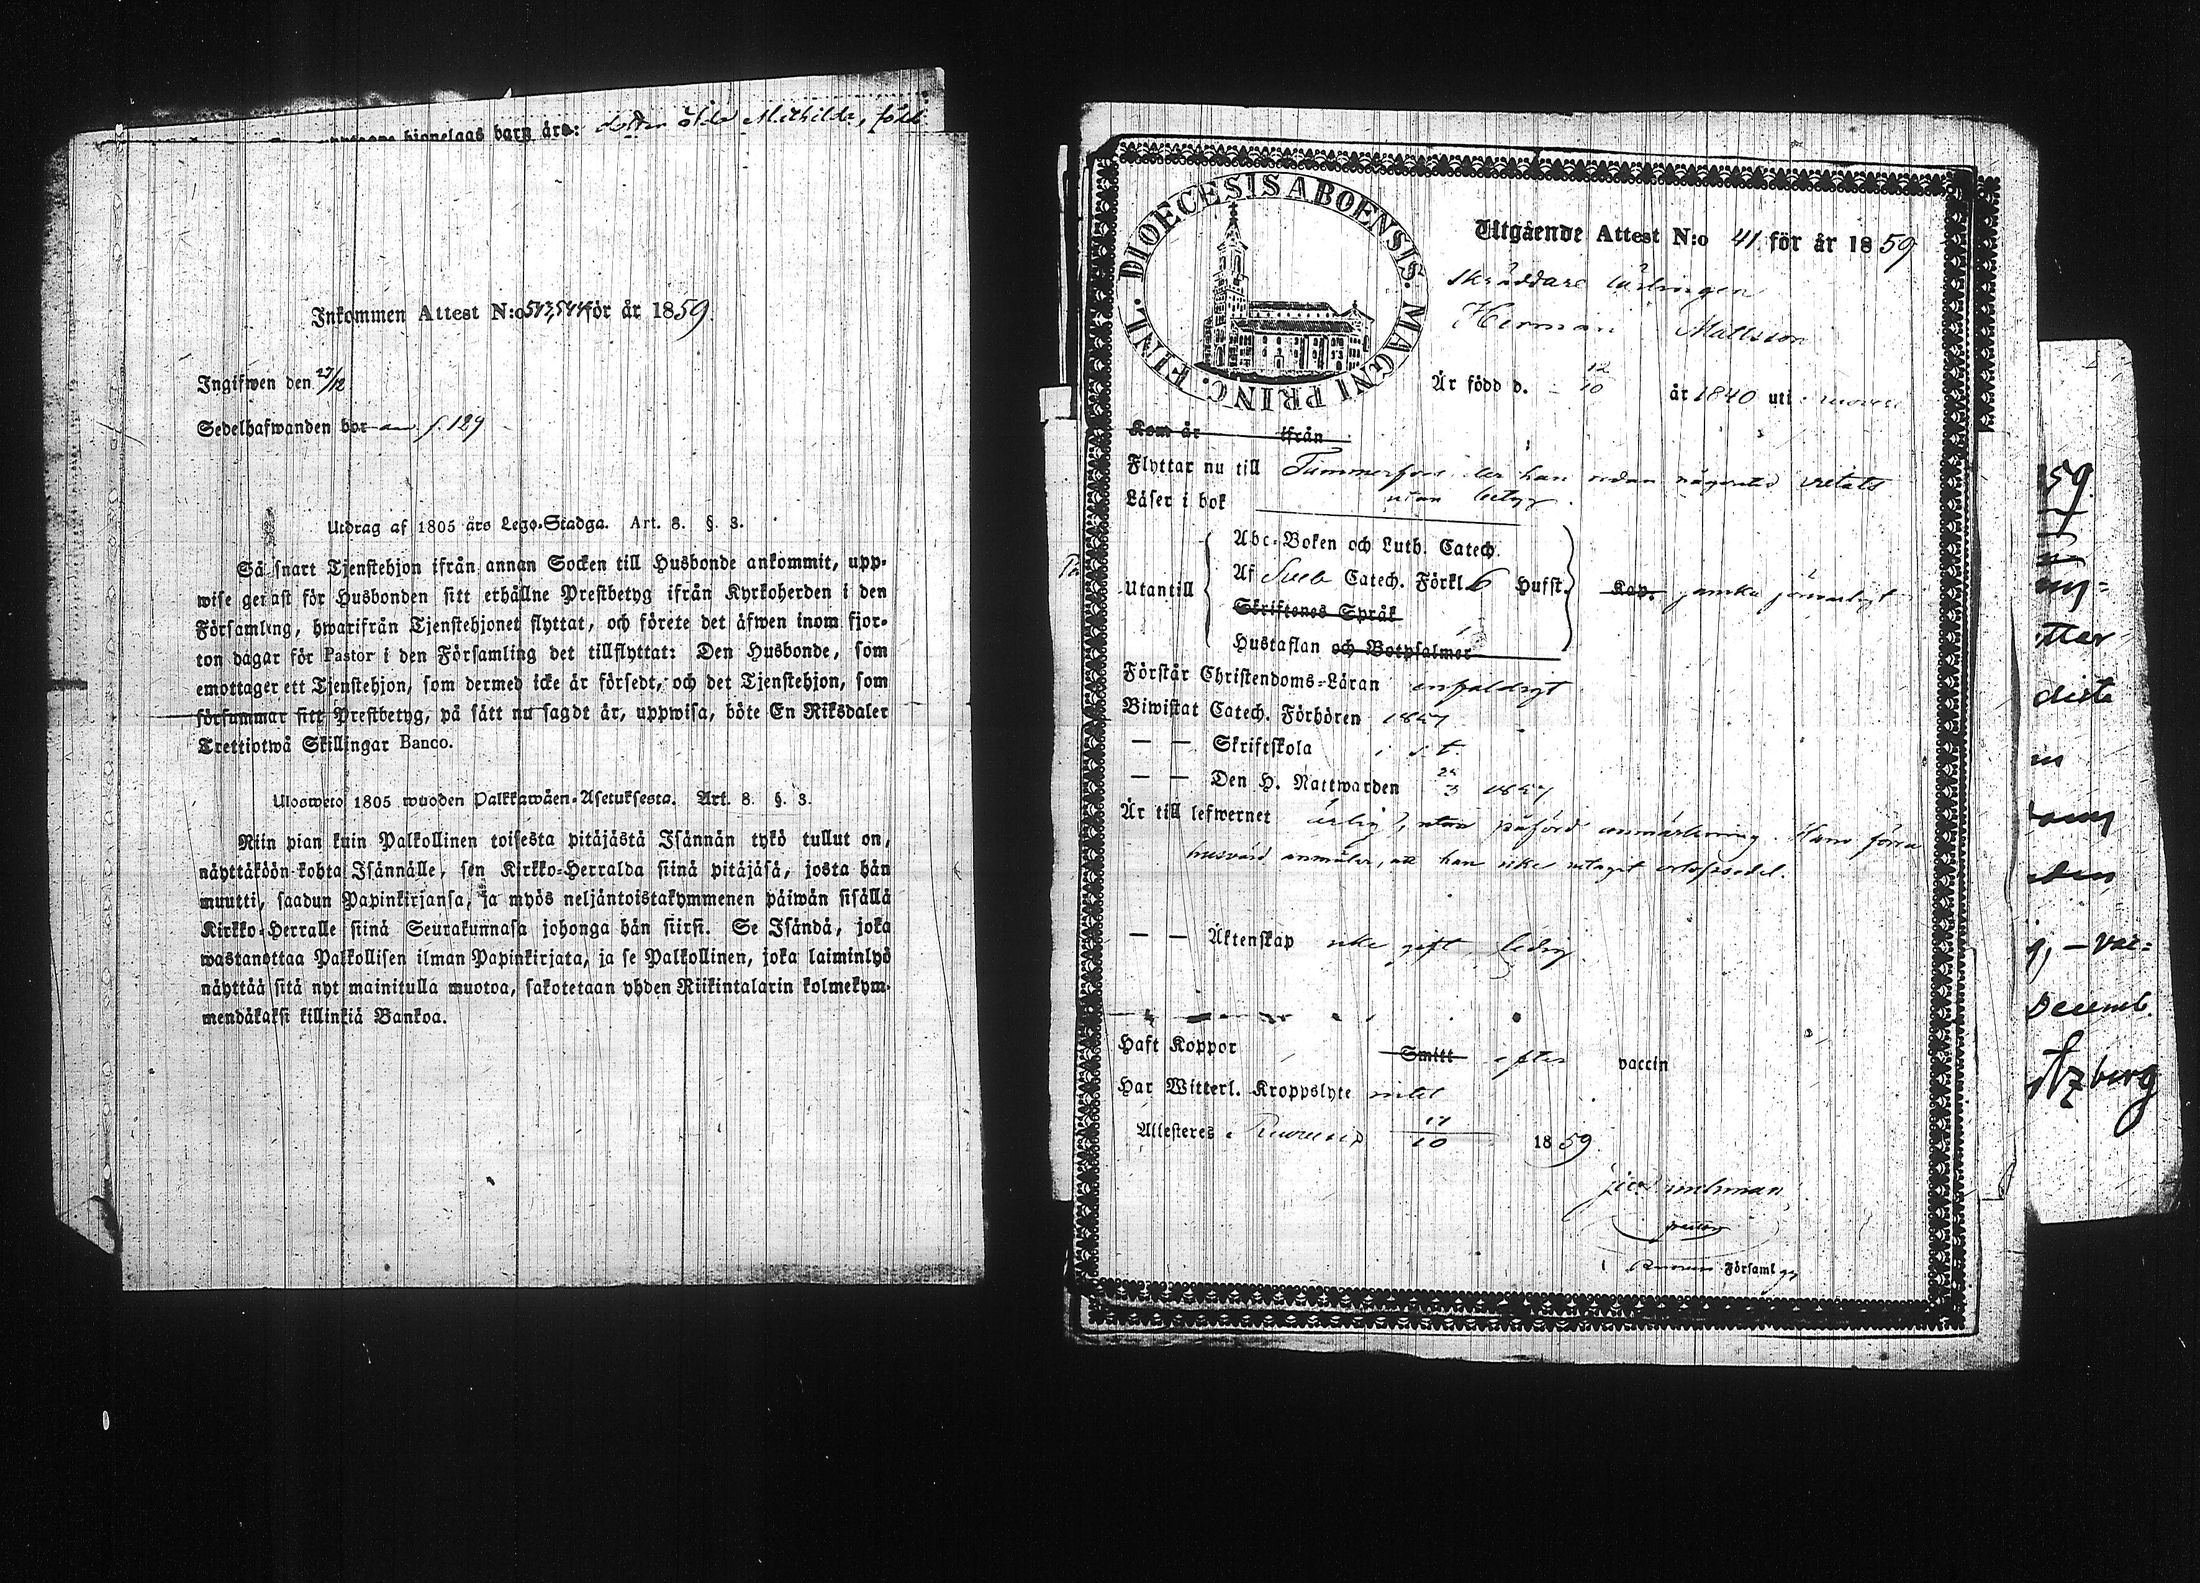 hionelags barn äro: dotter Ida Mathilda, född
Inkommen Attest N:o 543,544 för år 1859.
Ingifwen den 27/12
Sedelhafwanden bor an f. 129
Utdrag af 1805 års Lego-Stadga. Art. 8. §. 3.
Så snart Tjenstehjon ifrån annan Socken till Husbonde ankommit, upp-
wise genast för Husbonden sitt erhållne Prestbetyg ifrån Kyrkoherden i den
Församling, hwarifrån Tjenstehjonet flyttat, och förete det äfwen inom fjor-
ton dagar för Pastor i den Församling det tillflyttat: Den Husbonde, som
emottager ett Tjenstehjon, som dermed icke är försedt, och det Tjenstehjon, som
försummar sitt Prestbetyg, på sätt nu sagdt är, uppwisa, böte En Riksdaler
Trettiotwå Skillingar Banco.
Ulosweto 1805 wuoden Palkkawäen-Asetuksesta. Art. 8. §. 3.
Niin pian kuin Palkollinen toisesta pitäjästä Isännän tykö tullut on,
näyttäköön kohta Isännälle, sen Kirkko-Herralda siinä pitäjäsä, josta hän
muutti, saadun Papinkirjansa, ja myös neljäntoistakymmenen päiwän sisällä
Kirkko-Herralle siinä Seurakunnasa johonga hän siirsi. Se Isändä, joka
wastanottaa Palkollisen ilman Papinkirjata, ja se Palkollinen, joka laiminlyö
näyttää sitä nyt mainitulla muotoa, sakotetaan yhden Riikintalarin kolmekym-
mendäkaksi killinkiä Bankoa.
DIOECESIS ABOENSIS. MAGNI PRINC. FINL.
Utgående Attest N:o 41 för år 1859
Skräddare lärlingen
Herman Mattsson
Är född d. 12/10 år 1840 uti
Kom år ifrån
Flyttar nu till Tammerfors der han redan någon tid vistats
Läser i bok utan betyg.
Abc-Boken och Luth. Catech.
Utantill Af Sveb Catech. Förkl. 6 Hufst. Kap. ganska
Skriftenes Språk
Hustaflan och Botpsalmer
Förstår Christendoms-Läran enfaldigt
Biwistat Catech. Förhören 1857
— — Skriftskola i s. t.
— — Den H. Nattwarden 1857
Är till lefwernet ärlig, utan påförd anmärkning. Hans förra
husvärd anmäler, att han icke uttagit orlofssedel.
— — Äktenskap icke gift, ledig.
Haft Koppor Smitt efter vaccin
Har Witterl. Kroppslyte intet
Attesteres i Ruovesi 17/10 1859
pastor
i Ruovesi Församlg
59
ttar
diste
den
g, – var=
Decemb.
tzberg